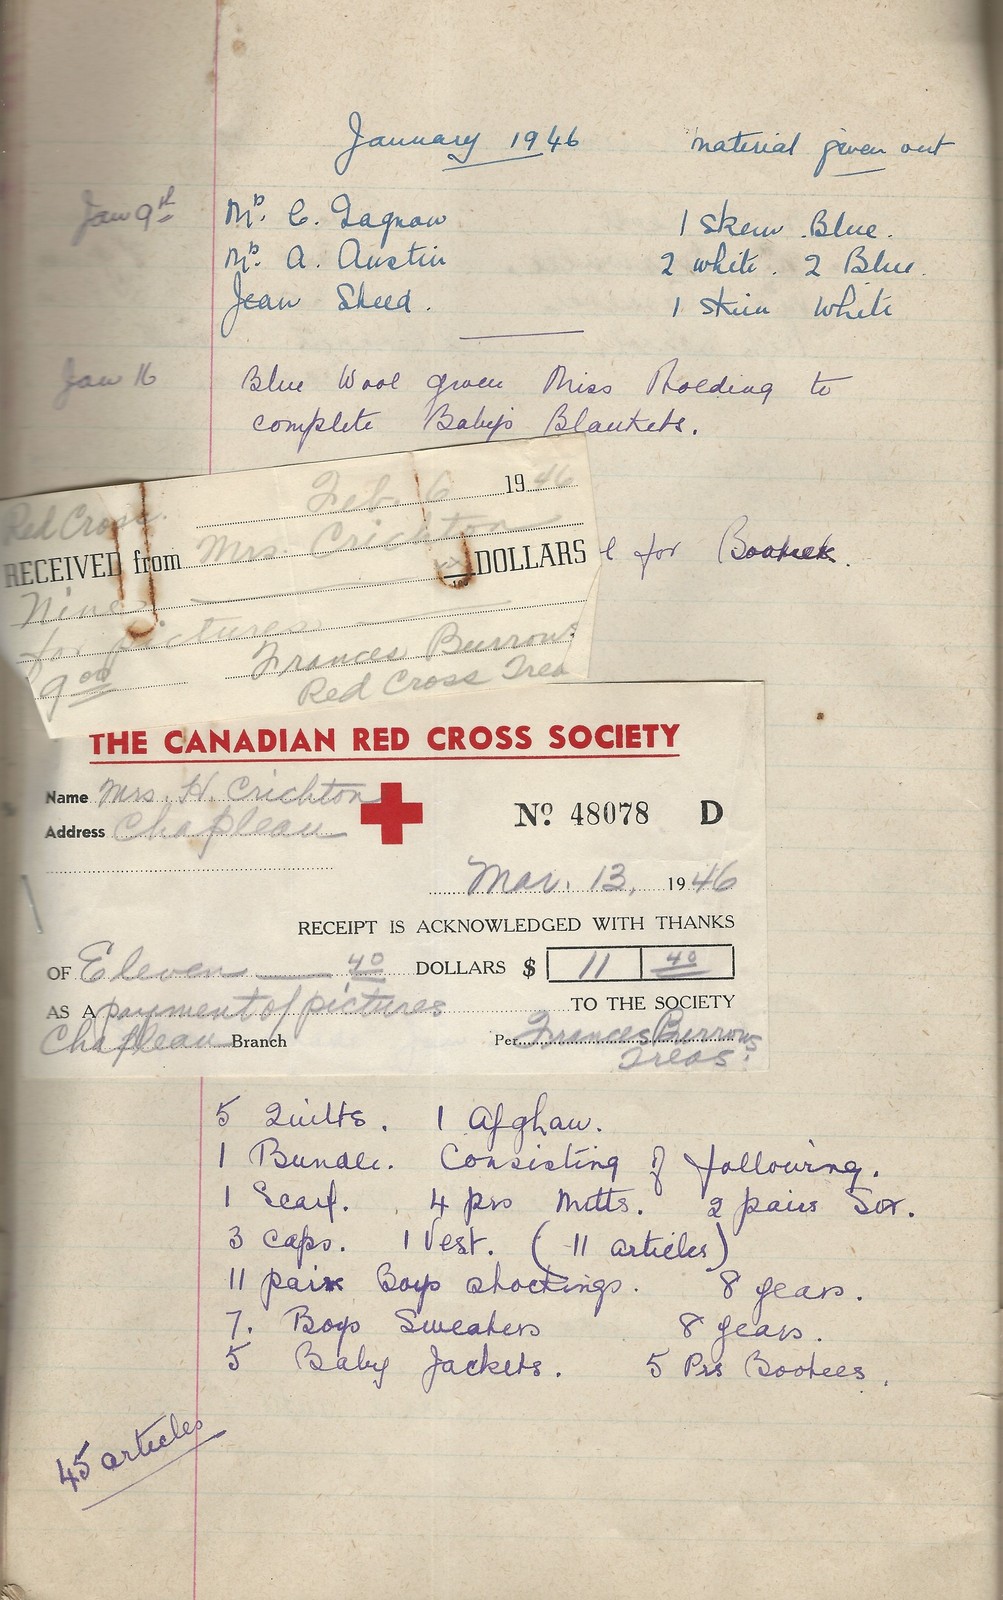 January 1946 material given out
Jan 9th Mrs. C. Gagnon 1 Skein Blue.
Mrs. A. Austin 2 white. 2 Blue.
Jean Sheed. 1 Skein White
Jan 16 Blue Wool given Miss to
complete Baby's Blankets.
Feb. 6 1946
Red Cross.
RECEIVED from Mrs. Crichton
Nine DOLLARS
for pictures
9.00 Frances Burrows
Red Cross Trea
l for Bootees.
THE CANADIAN RED CROSS SOCIETY
Name Mrs. H. Crichton
Address Chapleau
No. 48078 D
Mar. 13, 1946
RECEIPT IS ACKNOWLEDGED WITH THANKS
OF Eleven 40 DOLLARS $ 11 40
AS A payment of pictures TO THE SOCIETY
Chapleau Branch Per Frances Burrows
Treas.
5 Quilts. 1 Afghan.
1 Bundle. Consisting of following.
1 Scarf. 4 prs Mitts. 2 pairs Sox.
3 caps. 1 Vest. (11 articles)
11 pairs Boys stockings. 8 years.
7. Boys Sweaters 8 years.
5 Baby Jackets. 5 Prs Bootees.
45 articles